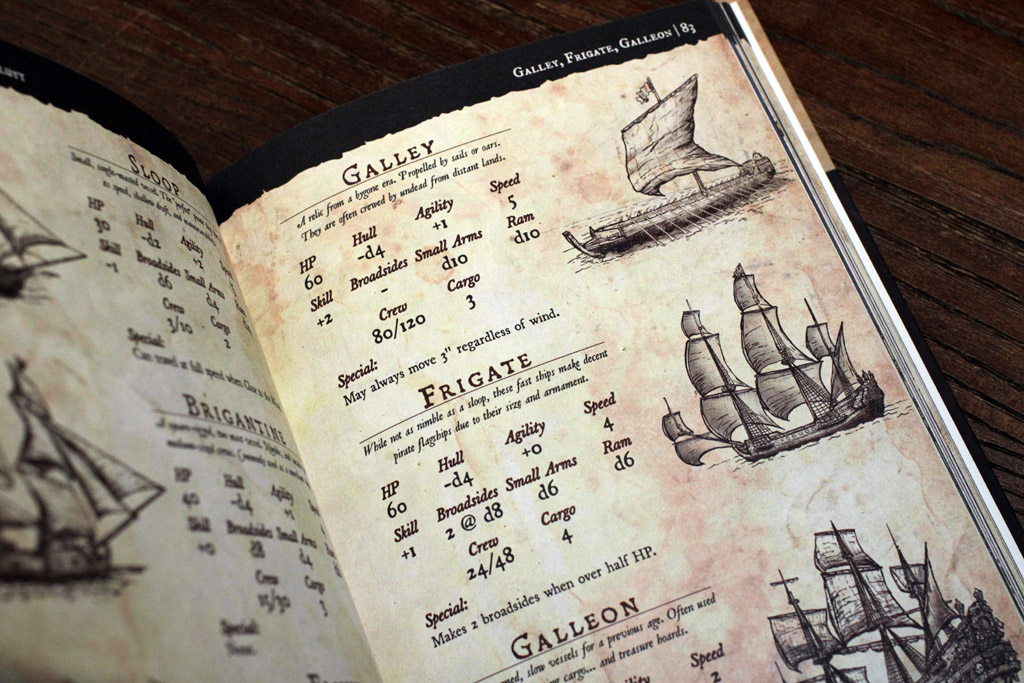 SLOOP
Small, single-masted vessel. The
HP Hull Agility
30 -d2 +2
Skill Broadsides Small Arms
-1 d6 d4
Crew Cargo
3/10 2
Special:
Can travel at full speed when Close to the
BRIGANTINE
HP Hull Agility
40 -d4 +1
Skill Broadsides Small Arms
+0 d8 d4
Crew Cargo
15/30 3
Special:
None.
GALLEY, FRIGATE, GALLEON | 83
GALLEY
A relic from a bygone era. Propelled by sails or oars.
They are often crewed by undead from distant lands.
HP Hull Agility Speed
60 -d4 +1 5
Skill Broadsides Small Arms Ram
+2 - d10 d10
Crew Cargo
80/120 3
Special:
May always move 3" regardless of wind.
FRIGATE
While not as nimble as a sloop, these fast ships make decent
pirate flagships due to their size and armament.
HP Hull Agility Speed
60 -d4 +0 4
Skill Broadsides Small Arms Ram
+1 2 @ d8 d6 d6
Crew Cargo
24/48 4
Special:
Makes 2 broadsides when over half HP.
GALLEON
slow vessels for a previous age. Often used
cargo... and treasure hoards.
Speed
2